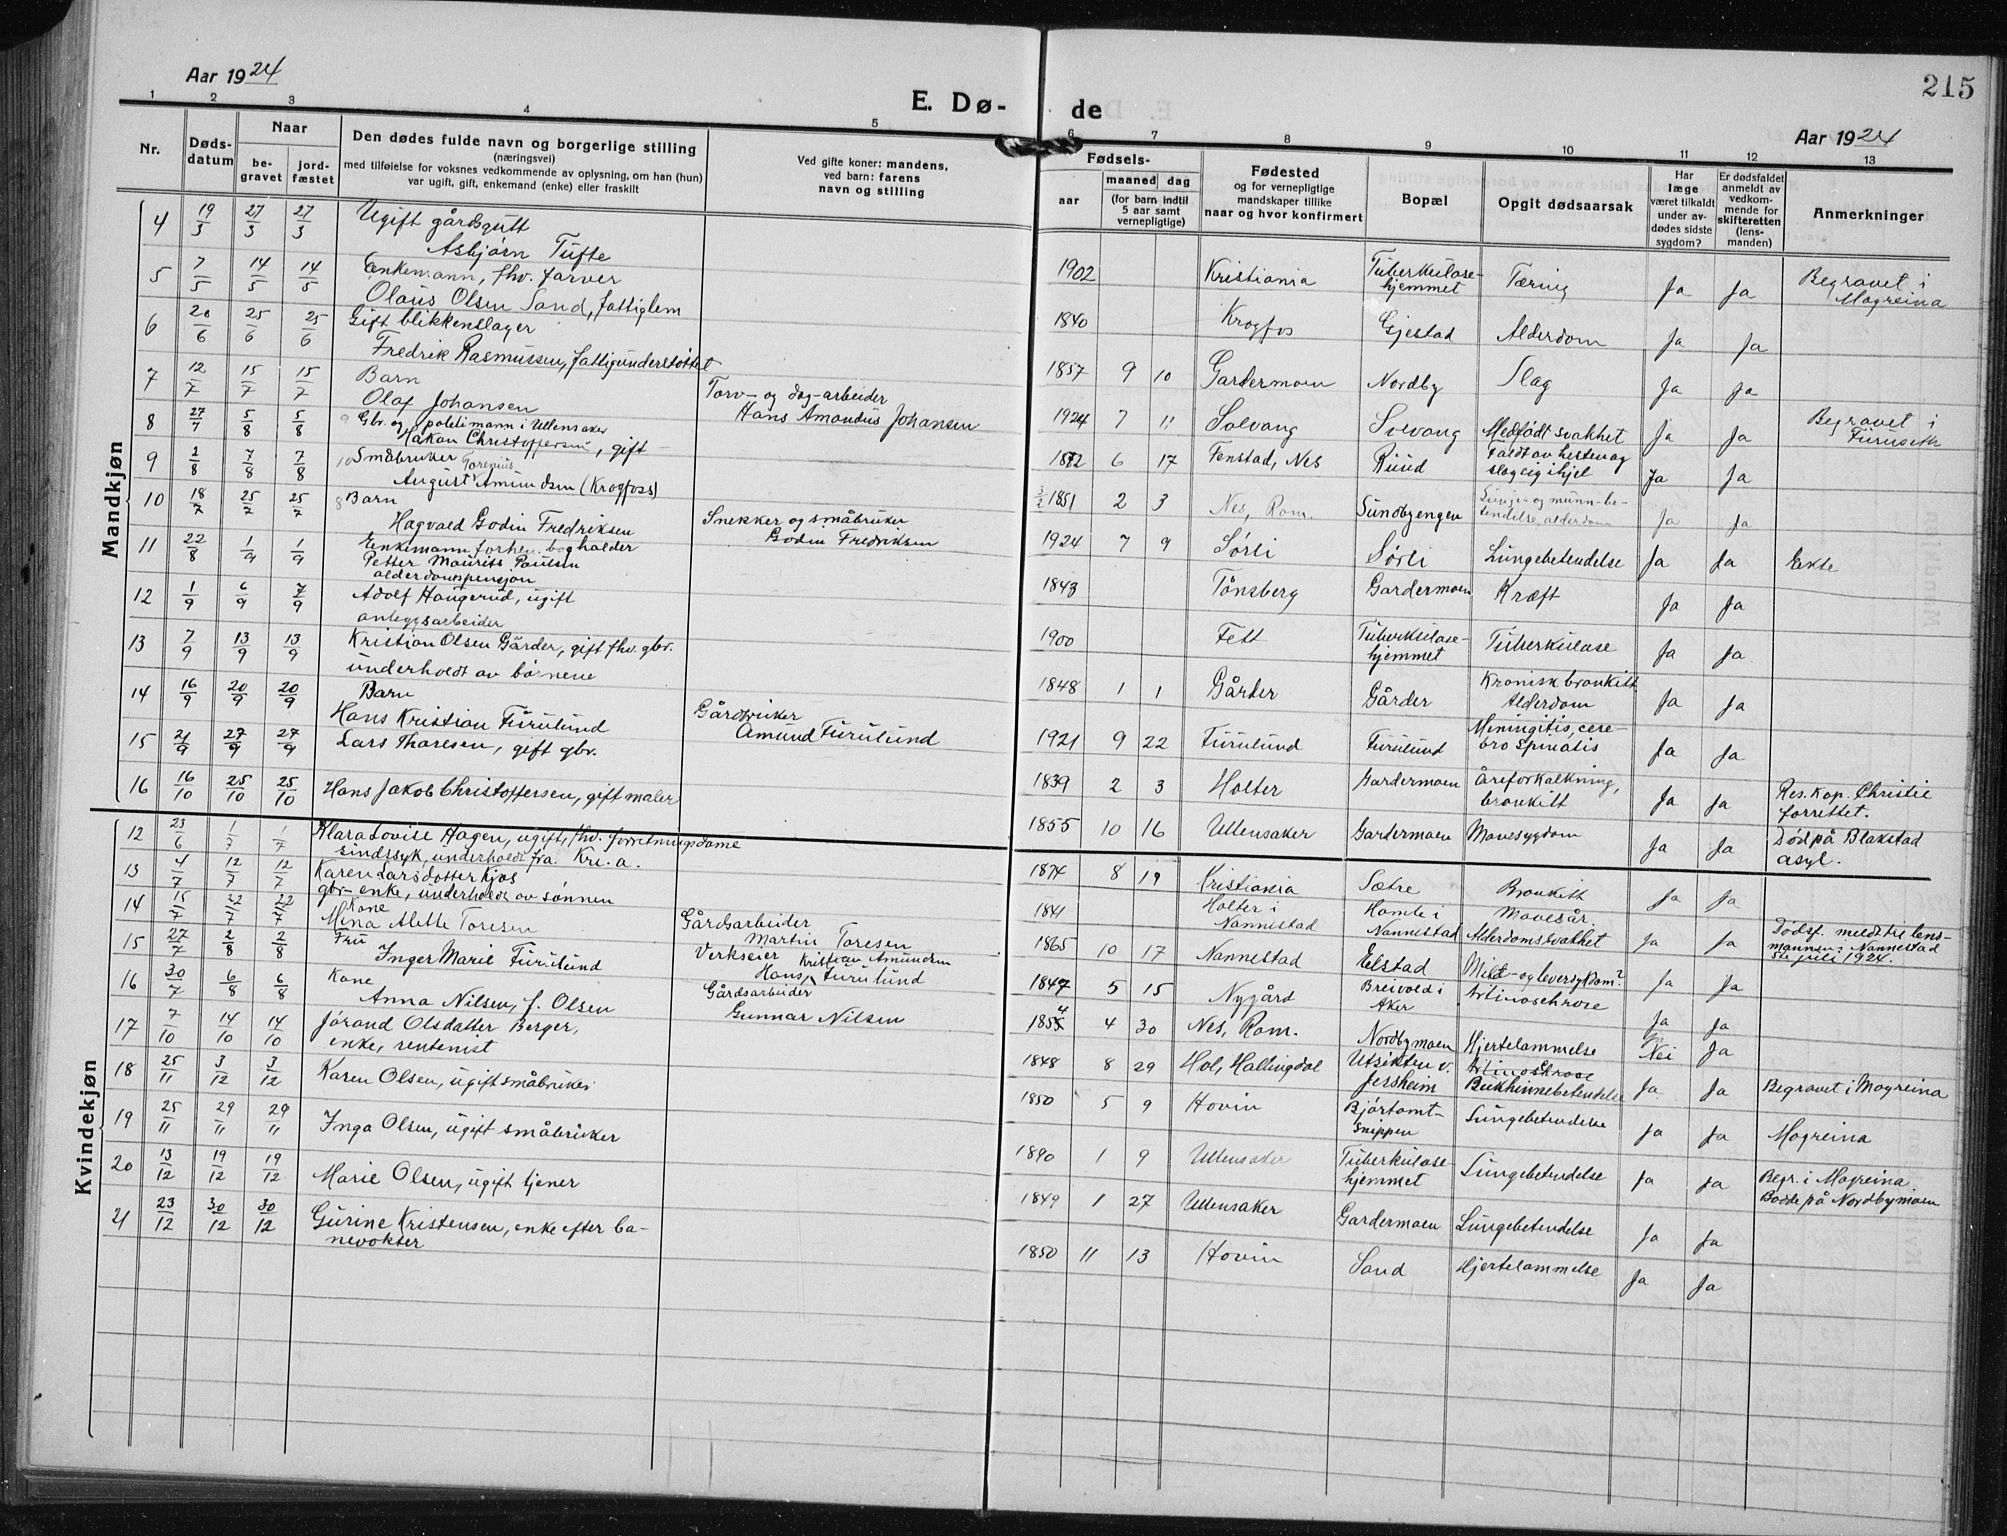 215
Aar 1924
E. Dø-
de
Aar 1924
1 2 3 4 5 6 7 8 9 10 11 12 13
Nr.
Døds-
datum
Naar
be-
gravet
jord-
fæstet
Den dødes fulde navn og borgerlige stilling
(næringsvei)
med tilføielse for voksnes vedkommende av oplysning, om han (hun)
var ugift, gift, enkemand (enke) eller fraskilt
Ved gifte koner: mandens,
ved barn: farens
navn og stilling
Fødsels-
aar
maaned dag
(for barn indtil
5 aar samt
vernepligtige)
Fødested
og for vernepligtige
mandskaper tillike
naar og hvor konfirmert
Bopæl
Opgit dødsaarsak
Har
læge
været tilkaldt
under av-
dødes sidste
sygdom?
Er dødsfaldet
anmeldt av
vedkom-
mende for
skifteretten
(lens-
manden)
Anmerkninger
Mandkjøn
4 19/3 27/3 27/3 Ugift gårdsgutt
Asbjørn Tufte
1902 Kristiania Tuberkulose-
hjemmet Tæring Ja Ja Begravet i
Mogreina
5 7/5 14/5 14/5 Enkemann, fhv. farver
Olaus Olsen Sand, fattiglem
1840 Krogfos Gjestad Alderdom Ja Ja
6 20/6 25/6 25/6 Gift blikkenslager
Fredrik Rasmussen, fattigunderstøttet
1857 9 10 Gardermoen Nordby Slag Ja Ja
7 12/7 15/7 15/7 Barn
Olaf Johansen
Torv- og dag-arbeider
Hans Amandus Johansen
1924 7 11 Solvang Solvang Medfødt svakhet Ja Ja Begravet i
Furuseth
8 27/7 5/8 5/8 Gbr. og politimann i Ullensaker
Håkon Christoffersen, gift
1872 6 17 Fenstad, Nes Ruud Faldt av hesten og
slog sig ihjel Ja Ja
9 2/8 7/8 7/8 Småbruker
Torenius
August Amundsen (Krogfoss)
1851 2 3 Nes, Rom. Sundbyengen Lunge- og munn-be-
tendelse, alderdom Ja Ja
10 18/7 25/7 25/7 Barn
Hagvald Godin Fredriksen
Snekker og småbruker
Godin Fredriksen
1924 7 9 Sørli Sørli Lungebetendelse Ja Ja Ekte
11 22/8 1/9 1/9 Enkemann forhen. bogholder
Petter Maurits Paulsen
alderdomspensjon
1843 Tønsberg Gardermoen Kræft Ja Ja
12 1/9 6/9 7/9 Adolf Haugerud, ugift
anleggsarbeider
1900 Fett Tuberkulose-
hjemmet Tuberkulose Ja Ja
13 7/9 13/9 13/9 Kristian Olsen Gårder, gift fhv. gbr.
underholdt av børnene
1848 1 1 Gårder Gårder Kronisk bronkitt
Alderdom Ja Ja
14 16/9 20/9 20/9 Barn
Hans Kristian Furulund
Gårdbruker
Amund Furulund
1921 9 22 Furulund Furulund Miningitis, cere-
bro spinalis Ja Ja
15 21/9 27/9 27/9 Lars Thoresen, gift gbr.
1839 2 3 Holter Gardermoen Åreforkalkning,
bronkitt Ja Ja Res. Kap. Christie
forrettet.
16 16/10 25/10 25/10 Hans Jakob Christoffersen, gift maler
1855 10 16 Ullensaker Gardermoen Mavesygdom Ja Ja
Kvindekjøn
12 23/6 1/7 1/7 Klara Lovise Hagen, ugift, fhv. forretningsdame
sindssyk, underholdt fra Kr.a.
1874 8 19 Kristiania Sætre Bronkitt Ja Ja Død på Blakstad
asyl.
13 4/7 12/7 12/7 Karen Larsdotter Kjos
gbr-enke, underholdt av sønnen
1841 Holter i
Nannestad Homle i
Nannestad Mavesår
Alderdomsvakhet Ja Ja Dødsf. meldt til lens-
mannen i Nannestad
5te juli 1924.
14 15/7 22/7 22/7 Kone
Mina Alette Toresen
Gårdsarbeider
Martin Toresen
1865 10 17 Nannestad Elstad Milt- og leversykdom? Ja Ja
15 27/7 2/8 2/8 Fru
Inger Marie Furulund
Verkseier Kristian Amundsen
Hans Furulund
1847 5 15 Nygård Breivold i
Aker Artinosclrose Ja Ja
16 30/7 6/8 6/8 Kone
Anna Nilsen, f. Olsen
Gårdsarbeider
Gunnar Nilsen
1854 4 30 Nes, Rom. Nordbymoen Hjertelammelse Ja
17 7/10 14/10 14/10 Jørand Olsdatter Berger,
enke, rentenist
1848 8 29 Hol, Hallingdal Utsikten v.
Jessheim Nei Ja
18 25/11 3/12 3/12 Karen Olsen, ugift småbruker
1850 5 9 Hovin Bjørtomt-
snippen Bukhinnebetendelse
Lungebetendelse Ja Ja Begravet i Mogreina
19 25/11 29/11 29/11 Inga Olsen, ugift småbruker
1890 1 9 Ullensaker Tuberkulose-
hjemmet Lungebetendelse Ja Ja Mogreina
20 13/12 19/12 19/12 Marie Olsen, ugift tjener
1849 1 27 Ullensaker Gardermoen Lungebetendelse Ja Ja Begr. i Mogreina
Bodde på Nordbymoen
21 23/12 30/12 30/12 Gurine Kristensen, enke efter ba-
nevokter
1850 11 13 Hovin Sand Hjertelammelse Ja Ja